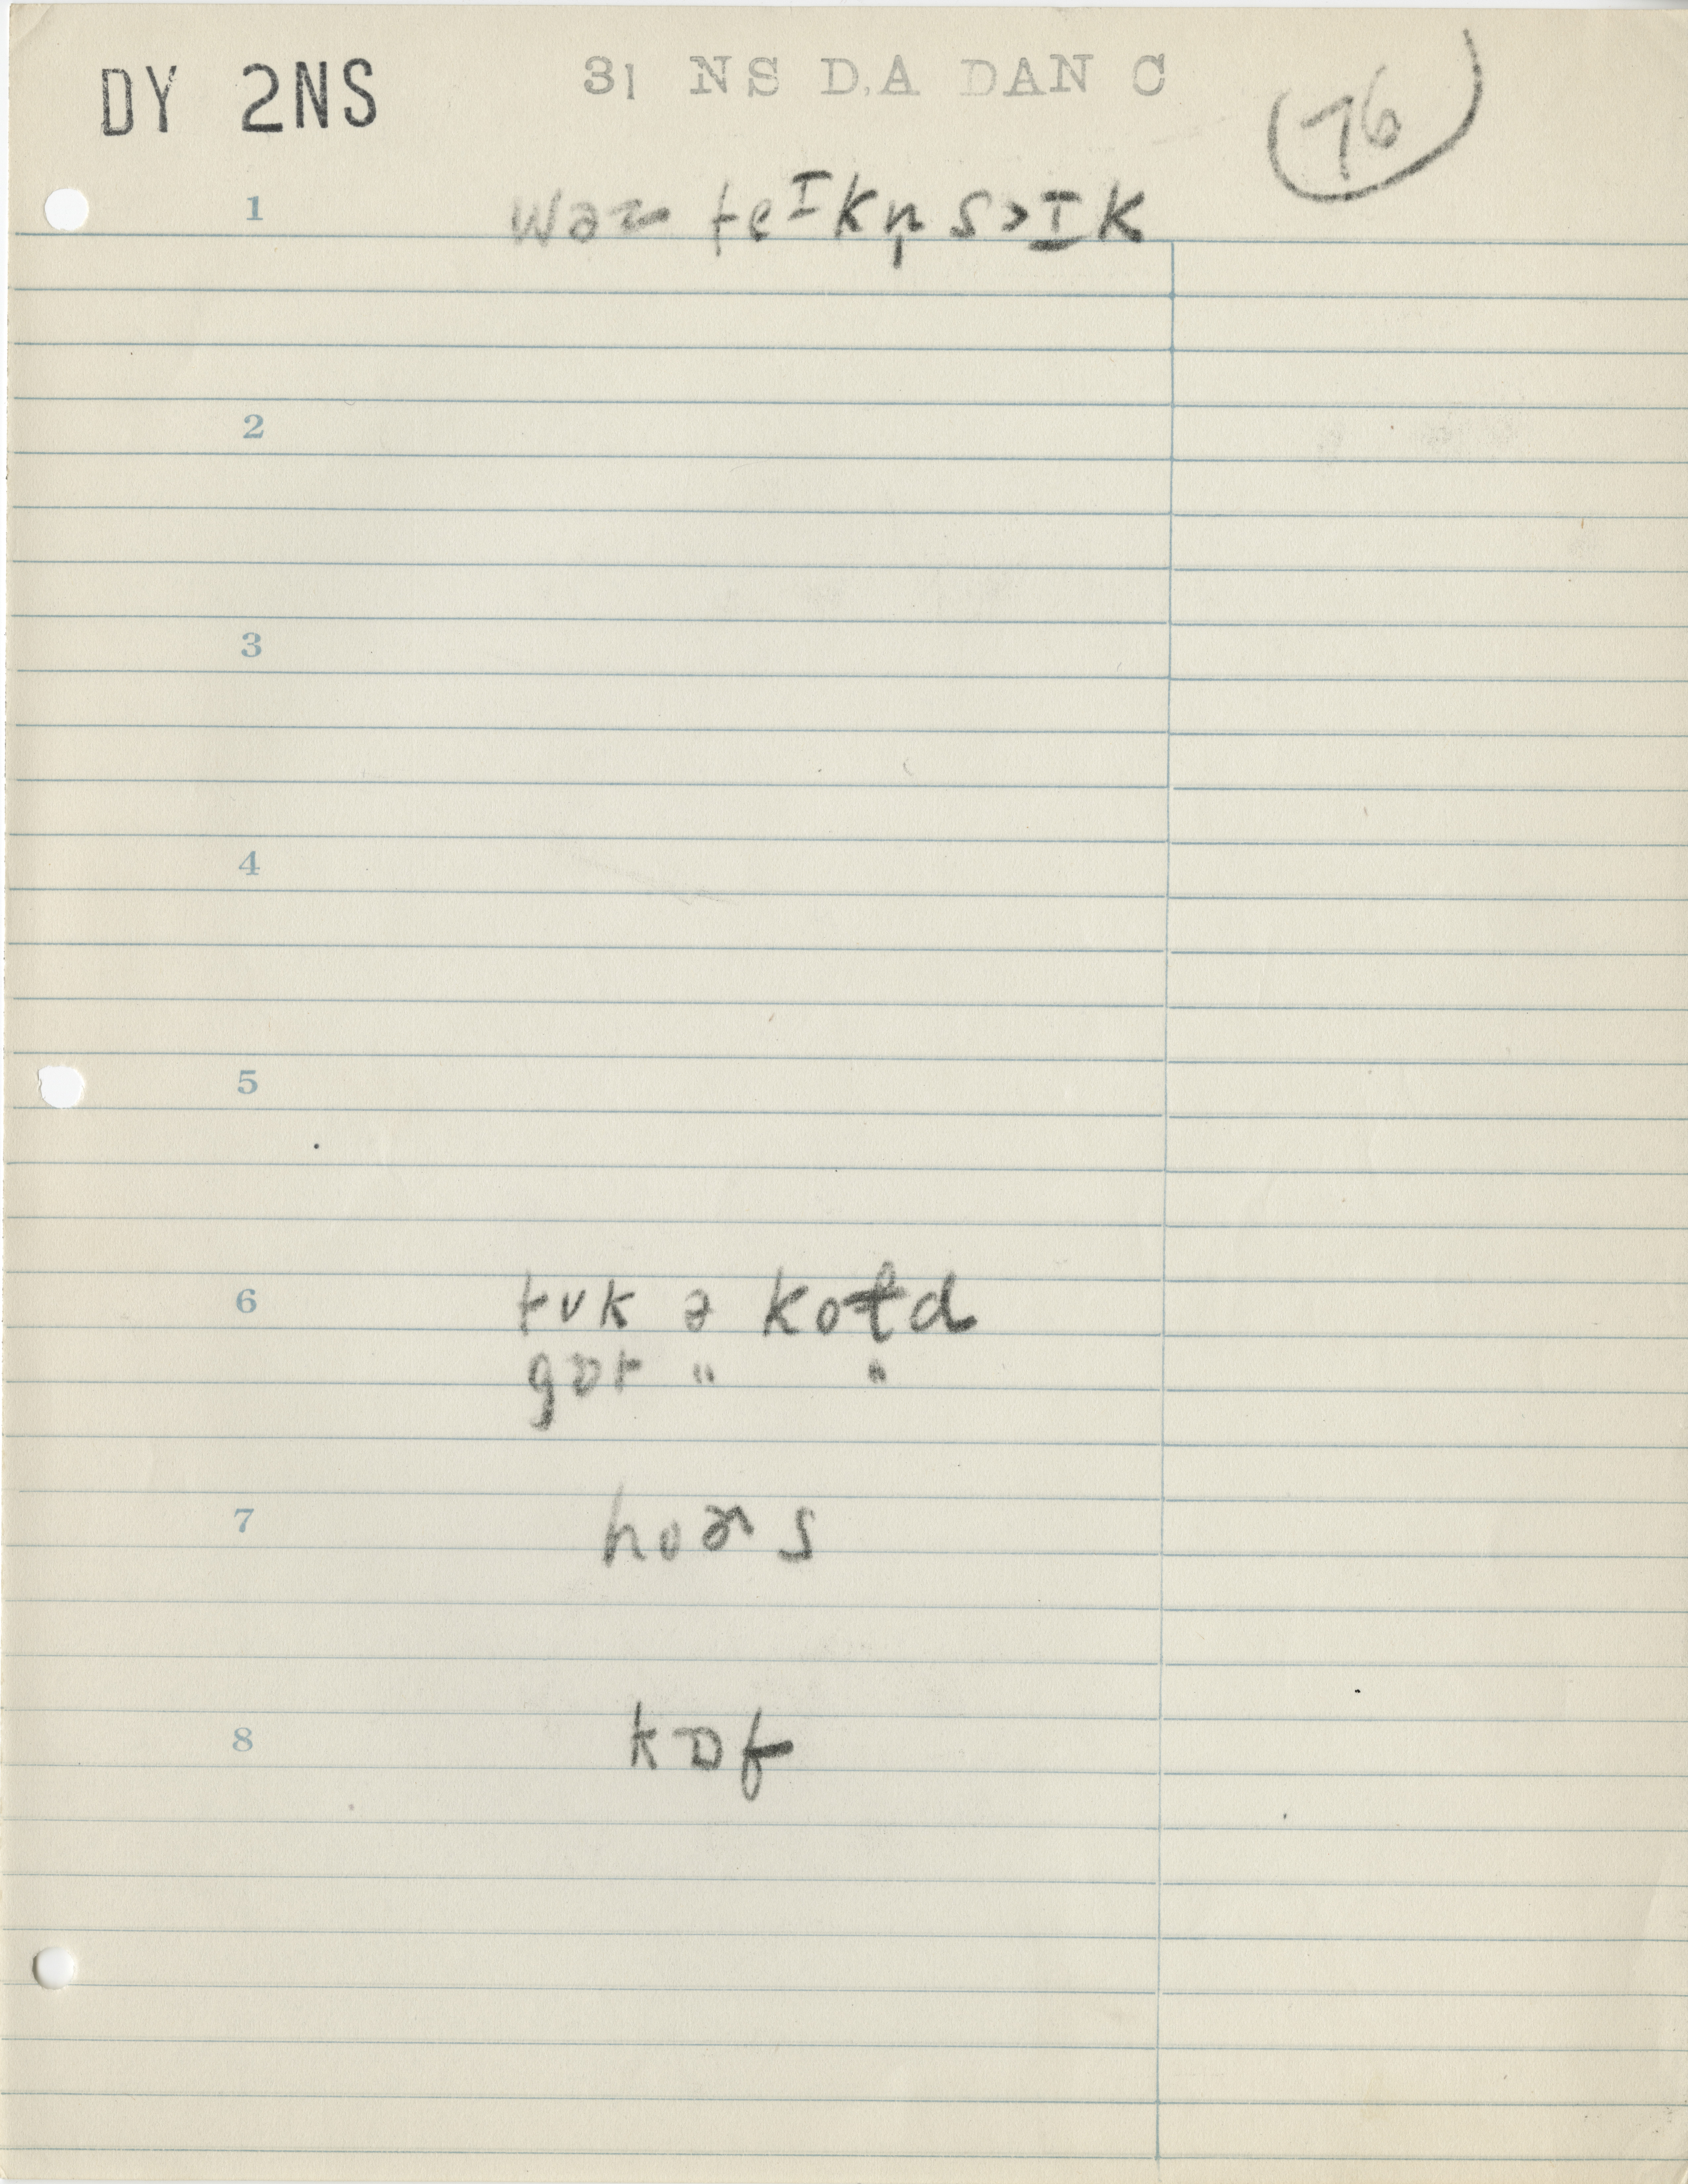 DY 2NS 31 NS D.A DAN C (76)
1 wəz teɪkn̩ s>ɪk
2
3
4
5
6 tʊk ə koɫd
gɒt " "
7 hoɚs
8 kɒf